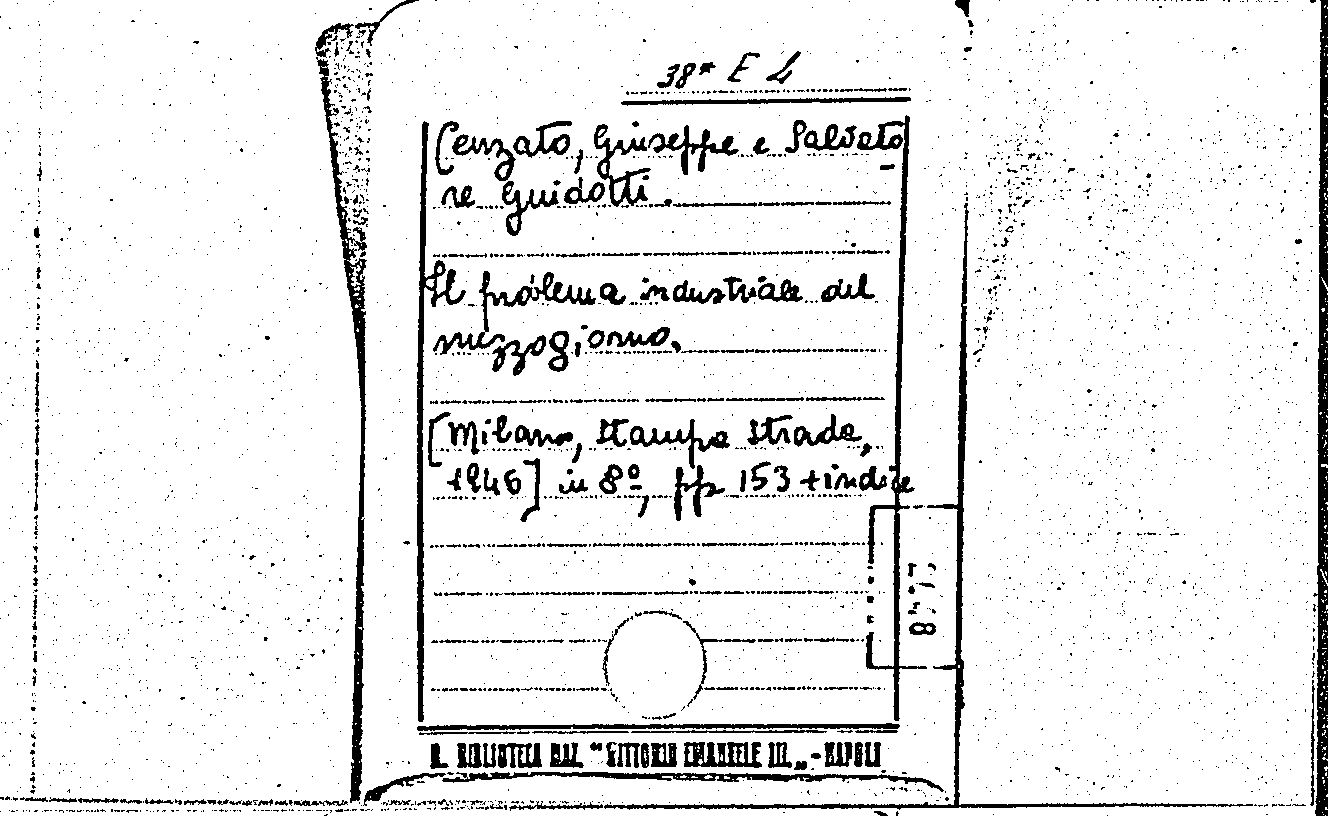 38* E 4
Cenzato, Giuseppe e Salvato-
re Guidotti.
Il problema industriale del
mezzogiorno.
[Milano, Stampa Strada,
1946] in 8º, pp 153 + indice
R. BIBLIOTECA NAZ. "VITTORIO EMANUELE III" - NAPOLI